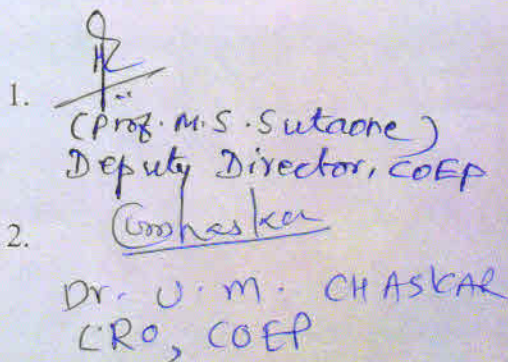 1.
(Prof. M.S. Sutaone)
Deputy Director, COEP
2. Umchaskar
Dr. U. M. CHASKAR
CRO, COEP